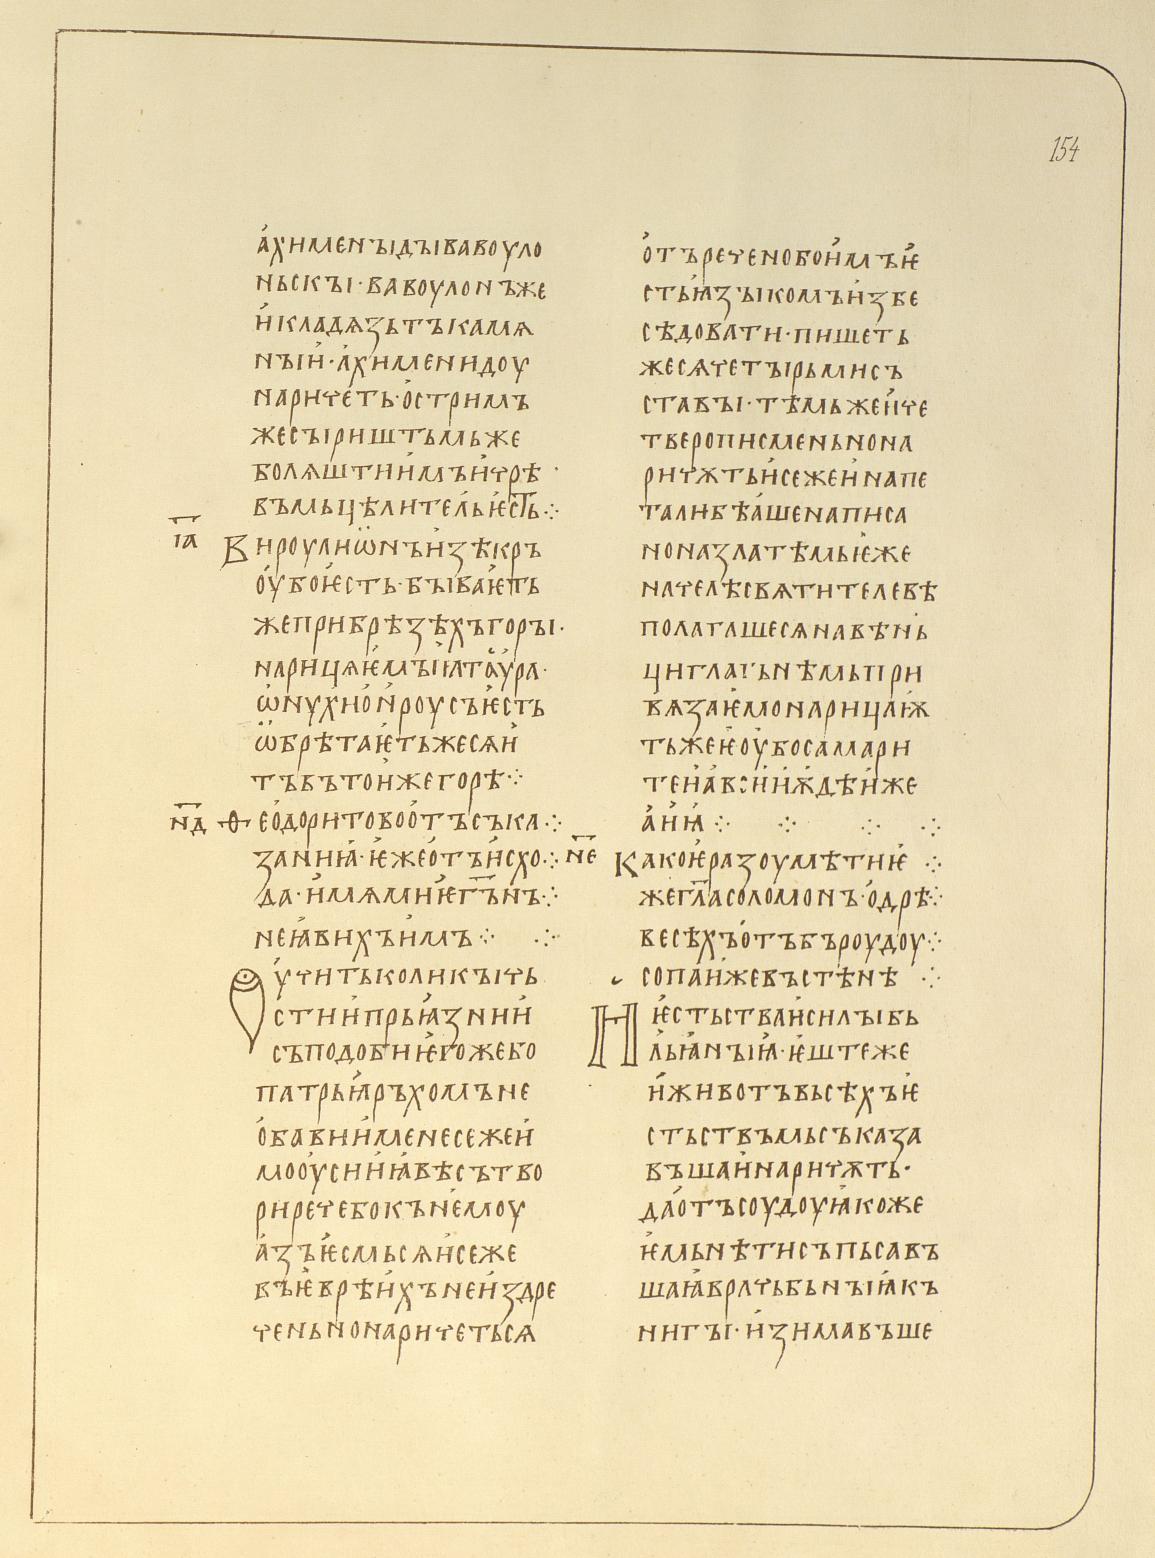 154
а҆хименꙑдꙑвавоуло
ньскꙑ·вавоулонъже
и҆кладѧзьтъкамѧ
нꙑи҆·а҆хименидоу
наричеть·о҆стримъ
жесꙑриштьмьже
болѧштии҆мъи҆чрѣ
въмьцѣлитель·ѥ҆сть⁘
і҃а
Вироулиѡ҆нъи҆зѣкръ
оу҆боѥ҆сть·бꙑваѥ҆ть
жеприбрѣзѣхъгорꙑ·
нарицѧѥ҆мꙑꙗ҆таѵ҆ра·
ѡ҆нухио҆и҆роусъѥ҆сть
ѡ҆брѣтаѥ҆тьжесѧи҆
тъвътои҆жегорѣ⁘
н҃д
Ѳео҆доритовоо҆тъсъка⁘
заниꙗ҆·ѥ҆жео҆тъи҆схо⁘
да·и҆мѧмиѥ҆г҃ъи҆ъ⁘
неꙗ҆вихъи҆мъ⁘ ⁘
Оу҆читьколикꙑчь
стии҆прꙗ҆знии҆
съподобниѥ҆гожебо
патрьꙗ҆ръхомъне
о҆бавии҆менесежеи҆
моѹ҆сиии҆ꙗ҆вѣсътво
риречебокън҄емоу
а҆зъѥ҆смьсѧи҆сеже
въѥ҆врѣи҆хънеи҆здре
ченьнонаричетьсѧ
о҆търеченобои҆мъѥ҆
стьꙗ҆зꙑкомъи҆збе
сѣдовати·пишеть
жесѧчетꙑрьмисъ
ставꙑ·тѣмьжеи҆че
тверописменьнона
ричѫтьи҆сежеи҆напе
талибѣа҆шенаписа
нона҆златѣмьѥ҆же
начелѣсвѧтителевѣ
полагашесѧнавѣнь
циглагънѣмьпри
вѧзаѥ҆монарицаѭ҆
тьжеѥ҆оу҆босамари
теи҆а҆в⁚и҆и҆ѭ҆дѣи҆же
а҆и҆ꙗ҆⁘ ⁘ ⁘ ⁘
н҃е
Какоѥ҆разоумѣтиѥ҆ ⁘
жегл҃асоломонъ·о҆дрѣ⁘
весѣхъо҆тъбъроудоу⁘
сопаи҆жевъстѣнѣ ⁘
Нѥ҆стьстваи҆силꙑбь
льꙗ҆нꙑꙗ҆·ѥ҆штеже
и҆животъвьсѣхъѥ҆
стьствъмьсъказа
въшаи҆наричѫть·
дао҆тъсоудоуꙗ҆коже
ѥ҆мьнѣтисъпьсавъ
шаꙗ҆врачьбьнꙑꙗ҆къ
нигꙑ·и҆зимавъше